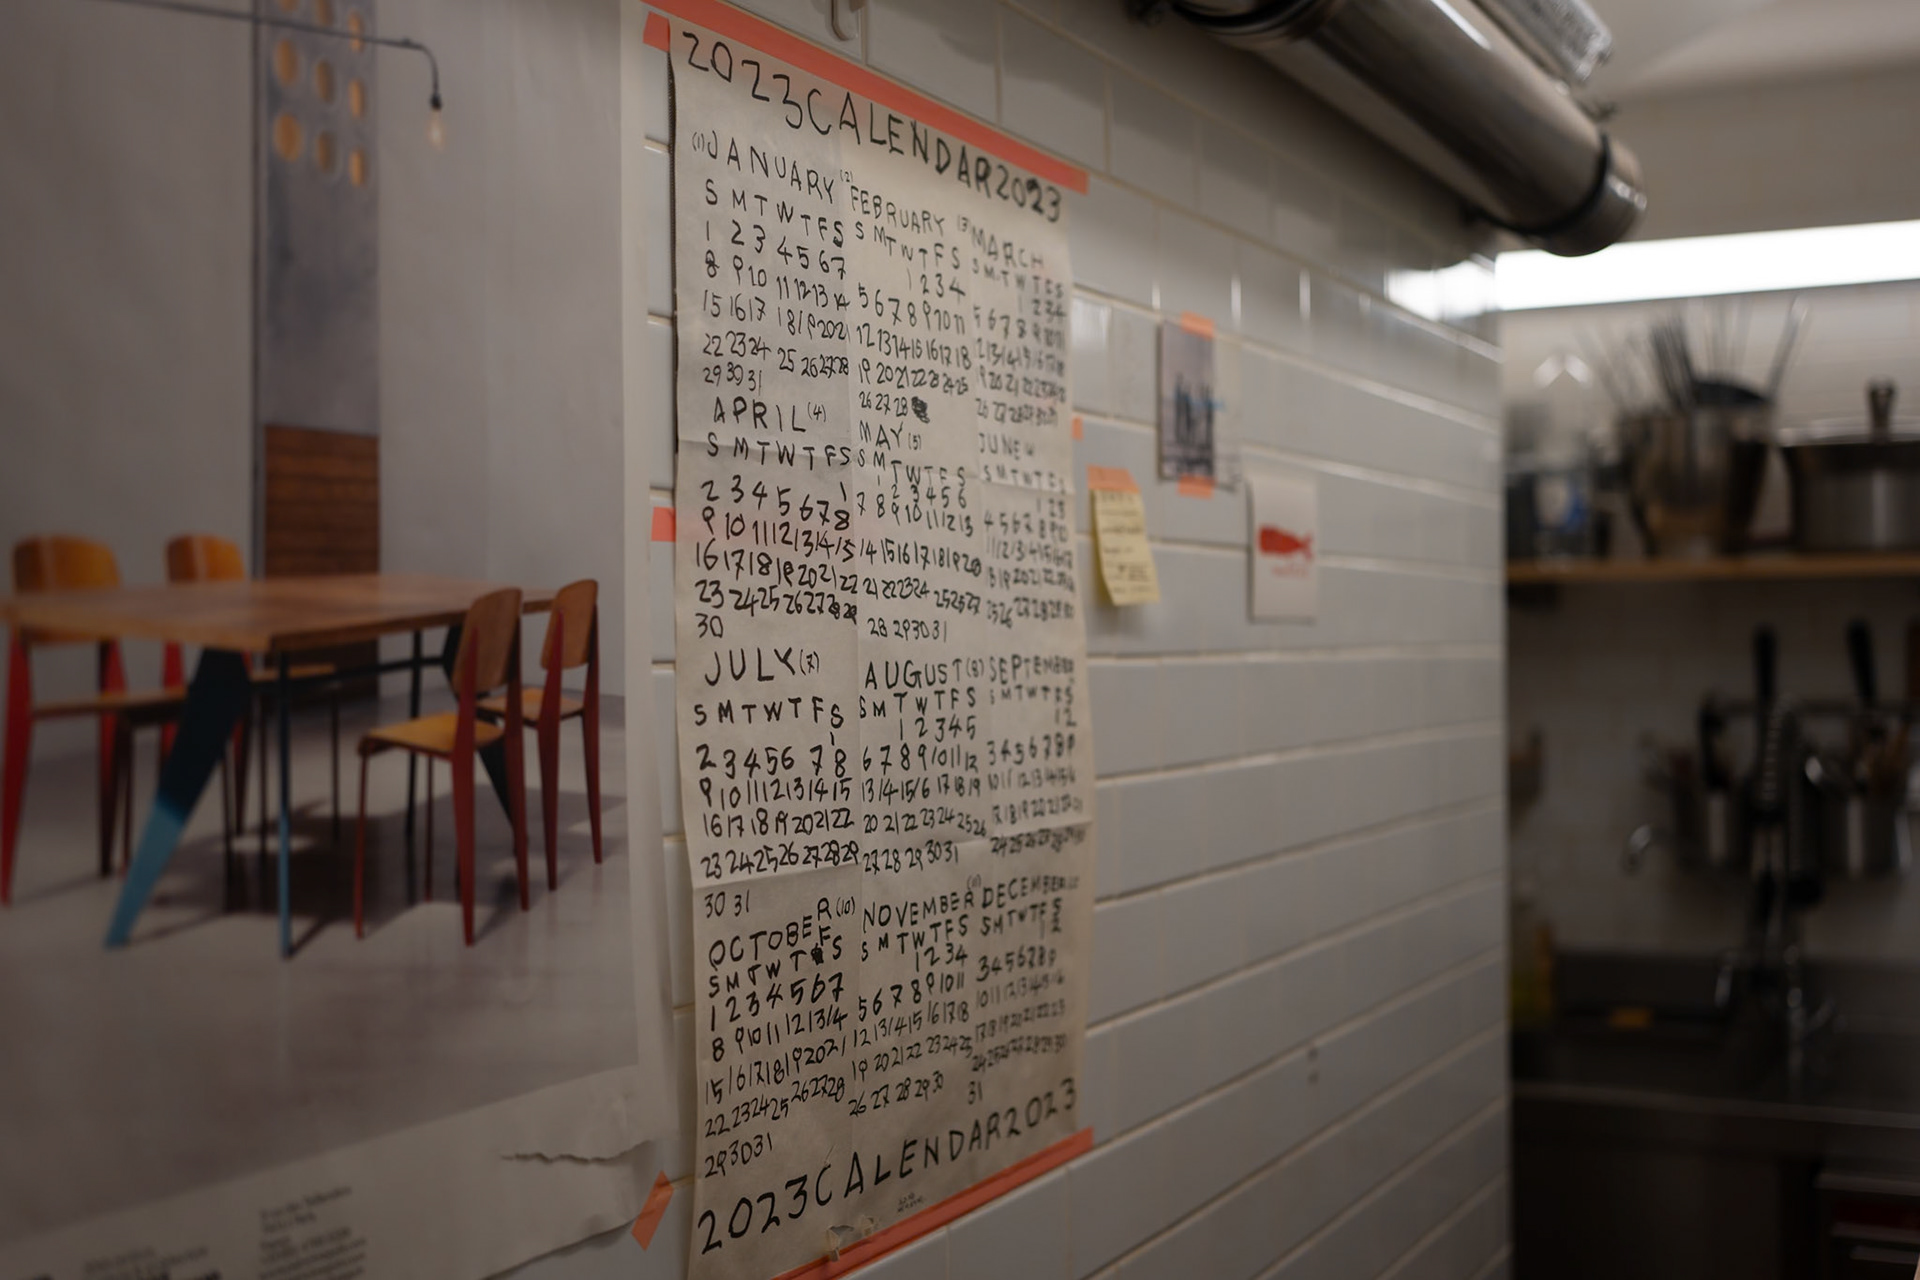 2023CALENDAR2023
(1)JANUARY
S M T W T F S
1 2 3 4 5 6 7
8 9 10 11 12 13 14
15 16 17 18 19 20 21
22 23 24 25 26 27 28
29 30 31
(2)FEBRUARY
S M T W T F S
1 2 3 4
5 6 7 8 9 10 11
12 13 14 15 16 17 18
19 20 21 22 23 24 25
26 27 28
(3)MARCH
S M T W T F S
1 2 3 4
5 6 7 8 9 10 11
26 27 28 29 30 31
APRIL(4)
S M T W T F S
1
2 3 4 5 6 7 8
9 10 11 12 13 14 15
16 17 18 19 20 21 22
23 24 25 26 27 28 29
30
MAY(5)
S M T W T F S
1 2 3 4 5 6
7 8 9 10 11 12 13
14 15 16 17 18 19 20
21 22 23 24 25 26 27
28 29 30 31
JUNE
S M T W T F S
1 2 3
4 5 6 7 8 9 10
11 12 13 14 15 16 17
18 19 20 21 22 23 24
JULY(7)
S M T W T F S
1
2 3 4 5 6 7 8
9 10 11 12 13 14 15
16 17 18 19 20 21 22
23 24 25 26 27 28 29
30 31
AUGUST(8)
S M T W T F S
1 2 3 4 5
6 7 8 9 10 11 12
13 14 15 16 17 18 19
20 21 22 23 24 25 26
27 28 29 30 31
SEPTEMBER
S M T W T F S
1 2
3 4 5 6 7 8 9
10 11 12 13 14 15 16
17 18 19 20 21 22 23
24 25 26 27 28 29 30
OCTOBER(10)
S M T W T F S
1 2 3 4 5 6 7
8 9 10 11 12 13 14
15 16 17 18 19 20 21
22 23 24 25 26 27 28
29 30 31
NOVEMBER(11)
S M T W T F S
1 2 3 4
5 6 7 8 9 10 11
12 13 14 15 16 17 18
19 20 21 22 23 24 25
26 27 28 29 30
DECEMBER
S M T W T F S
1 2
3 4 5 6 7 8 9
10 11 12 13 14 15 16
17 18 19 20 21 22 23
24 25 26 27 28 29 30
31
2023CALENDAR2023